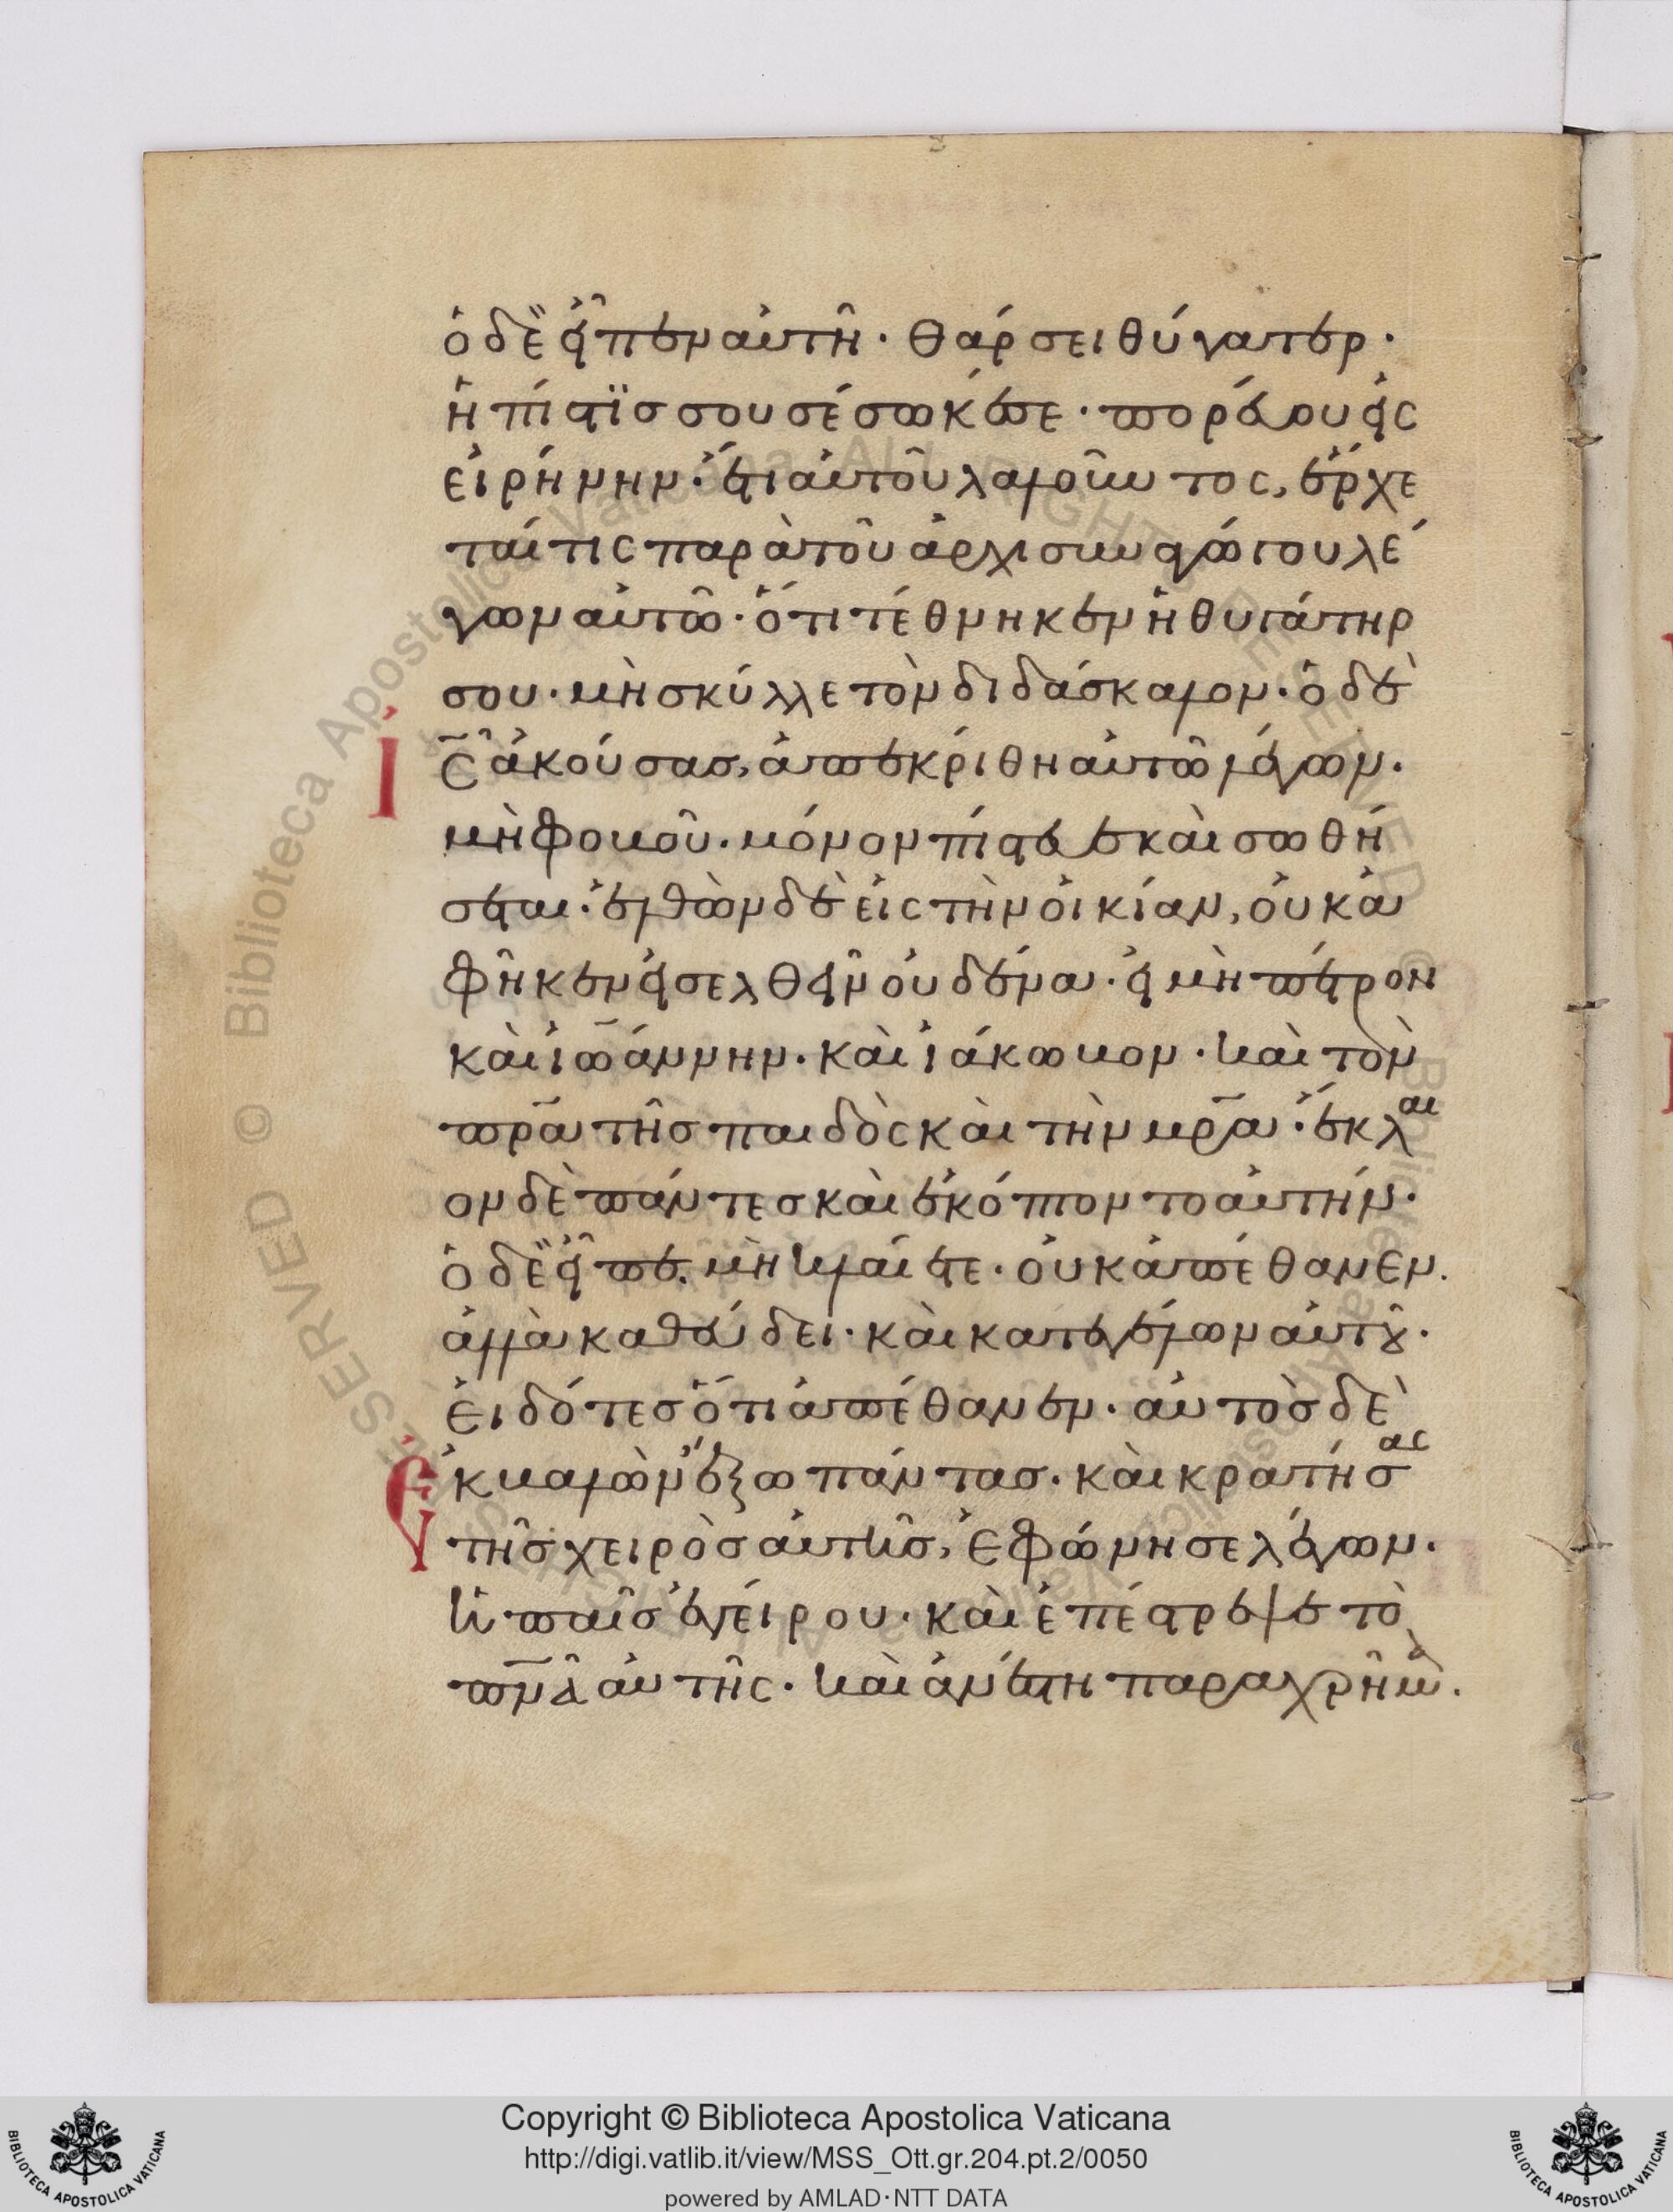 ὁ δὲ εἶπεν αὐτῆ· θάρσει θύγατερ·
ἡ πίστϊσ σου σέσωκέ σε· πορεύου εἰς
εἰρήνην· ἔτι αὐτοῦ λαλοῦντος, ἔρχε
ταί τις παρὰ τοῦ ἀρχισυναγώγου λέ
γων αὐτῶ· ὅτι τέθνηκεν ἡ θυγάτηρ
σου· μὴ σκύλλε τὸν διδάσκαλον· ὁ δὲ
Ἰς̅ ἀκούσασ, ἀπεκρίθη αὐτῶ λέγων·
μὴ φοβοῦ· μόνον πίστευε καὶ σωθή
σεται· ἐλθὼν δὲ εἰς τὴν οἰκίαν, οὐκ ἀ
φῆκεν εἰσελθεῖν οὐδένα· εἰ μὴ πέτρον
καὶ ἰω̅άννην· καὶ ἰάκωβον· καὶ τὸν
πρ̅α τῆσ παιδὸς καὶ τὴν μρ̅α· ἔκλαι
ον δὲ πάντεσ καὶ ἐκόπτοντο αὐτήν·
ὁ δὲ εἶπε. μὴ κλαίετε· οὐκ ἀπέθανεν.
ἀλλὰ καθεύδει· καὶ κατεγέλων αὐτοῦ·
εἰδότεσ ὅτι ἀπέθανεν· αὐτὸσ δὲ
Ἐκβαλὼν ἔξω πάντασ· καὶ κρατήσας
τῆσ χειρὸσ αὐτῆσ, ἐφώνησε λέγων·
ἡ παῖσ ἐγείρου· καὶ ἐπέστρεψε τὸ
πν̅α αὐτῆς· καὶ ἀνέστη παραχρῆμα.
Copyright © Biblioteca Apostolica Vaticana
http://digi.vatlib.it/view/MSS_Ott.gr.204.pt.2/0050
powered by AMLAD·NTT DATA